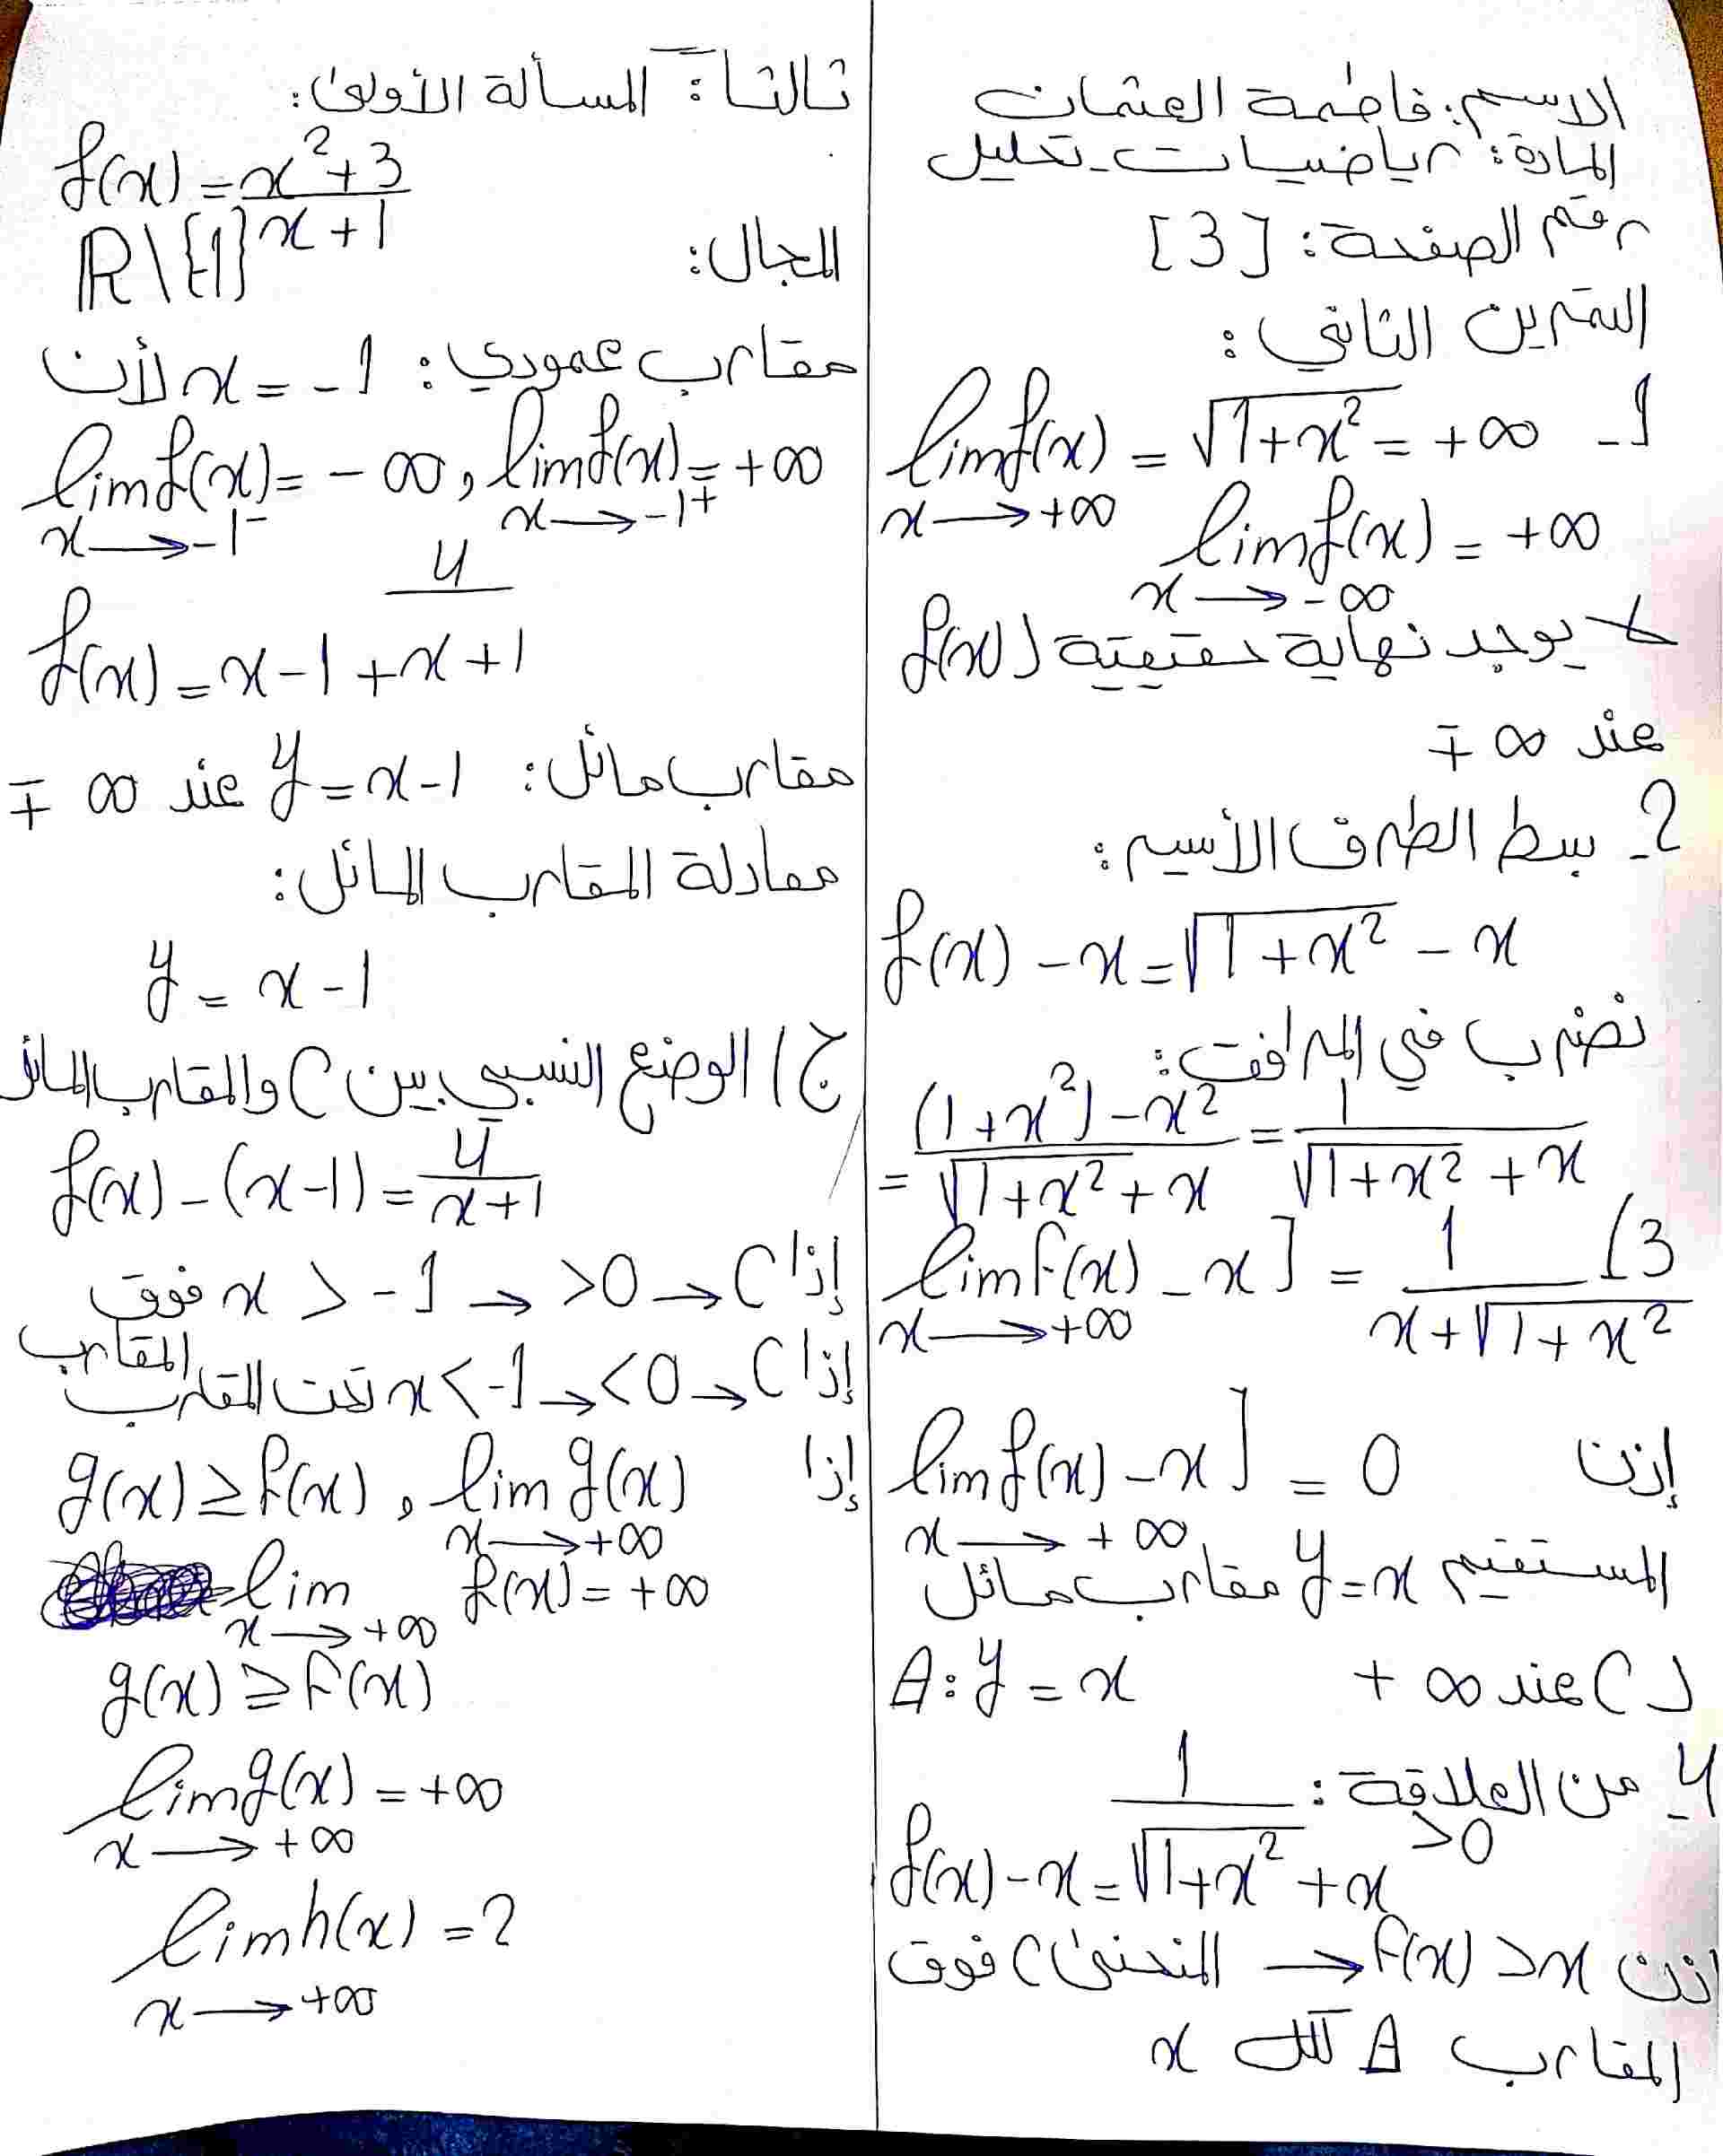 الاسم: فاطمة العثمان
المادة: رياضيات - تحليل
رقم الصفحة: [3]
التمرين الثاني:
1- lim f(x) = √(1+x²) = +∞
x → +∞
lim f(x) = +∞
x → -∞
لا يوجد نهاية حقيقية لـ f(x)
عند ∓ ∞
2- بسط الطرف الأسيم:
f(x) - x = √(1+x²) - x
نضرب في المرافق:
= ((1+x²) - x²)/(√(1+x²) + x) = 1/(√(1+x²) + x)
3) lim f(x) - x] = 1/(x+√(1+x²))
x → +∞
إذن lim f(x) - x] = 0
x → +∞
المستقيم y = x مقارب مائل
لـ C عند +∞ A: y = x
4- من العلاقة:
f(x) - x = 1/(√(1+x²) + x) >0
إذن f(x) > x → المنحنى C فوق
المقارب A لكل x
ثالثاً: المسألة الأولى:
f(x) = (x²+3)/(x+1)
المجال: R\{-1}
مقارب عمودي: x = -1 لأن
lim f(x) = -∞ , lim f(x) = +∞
x → -1⁻ x → -1⁺
f(x) = x-1 + 4/(x+1)
مقارب مائل: y = x-1 عند ∓ ∞
معادلة المقارب المائل:
y = x-1
ج) الوضع النسبي بين C والمقارب المائل
f(x) - (x-1) = 4/(x+1)
إذا x > -1 → >0 → C فوق المقارب
إذا x < -1 → <0 → C تحت المقارب
إذا g(x) ≥ f(x) , lim g(x)
x → +∞
lim f(x) = +∞
x → +∞
g(x) ≥ f(x)
lim g(x) = +∞
x → +∞
lim h(x) = 2
x → +∞